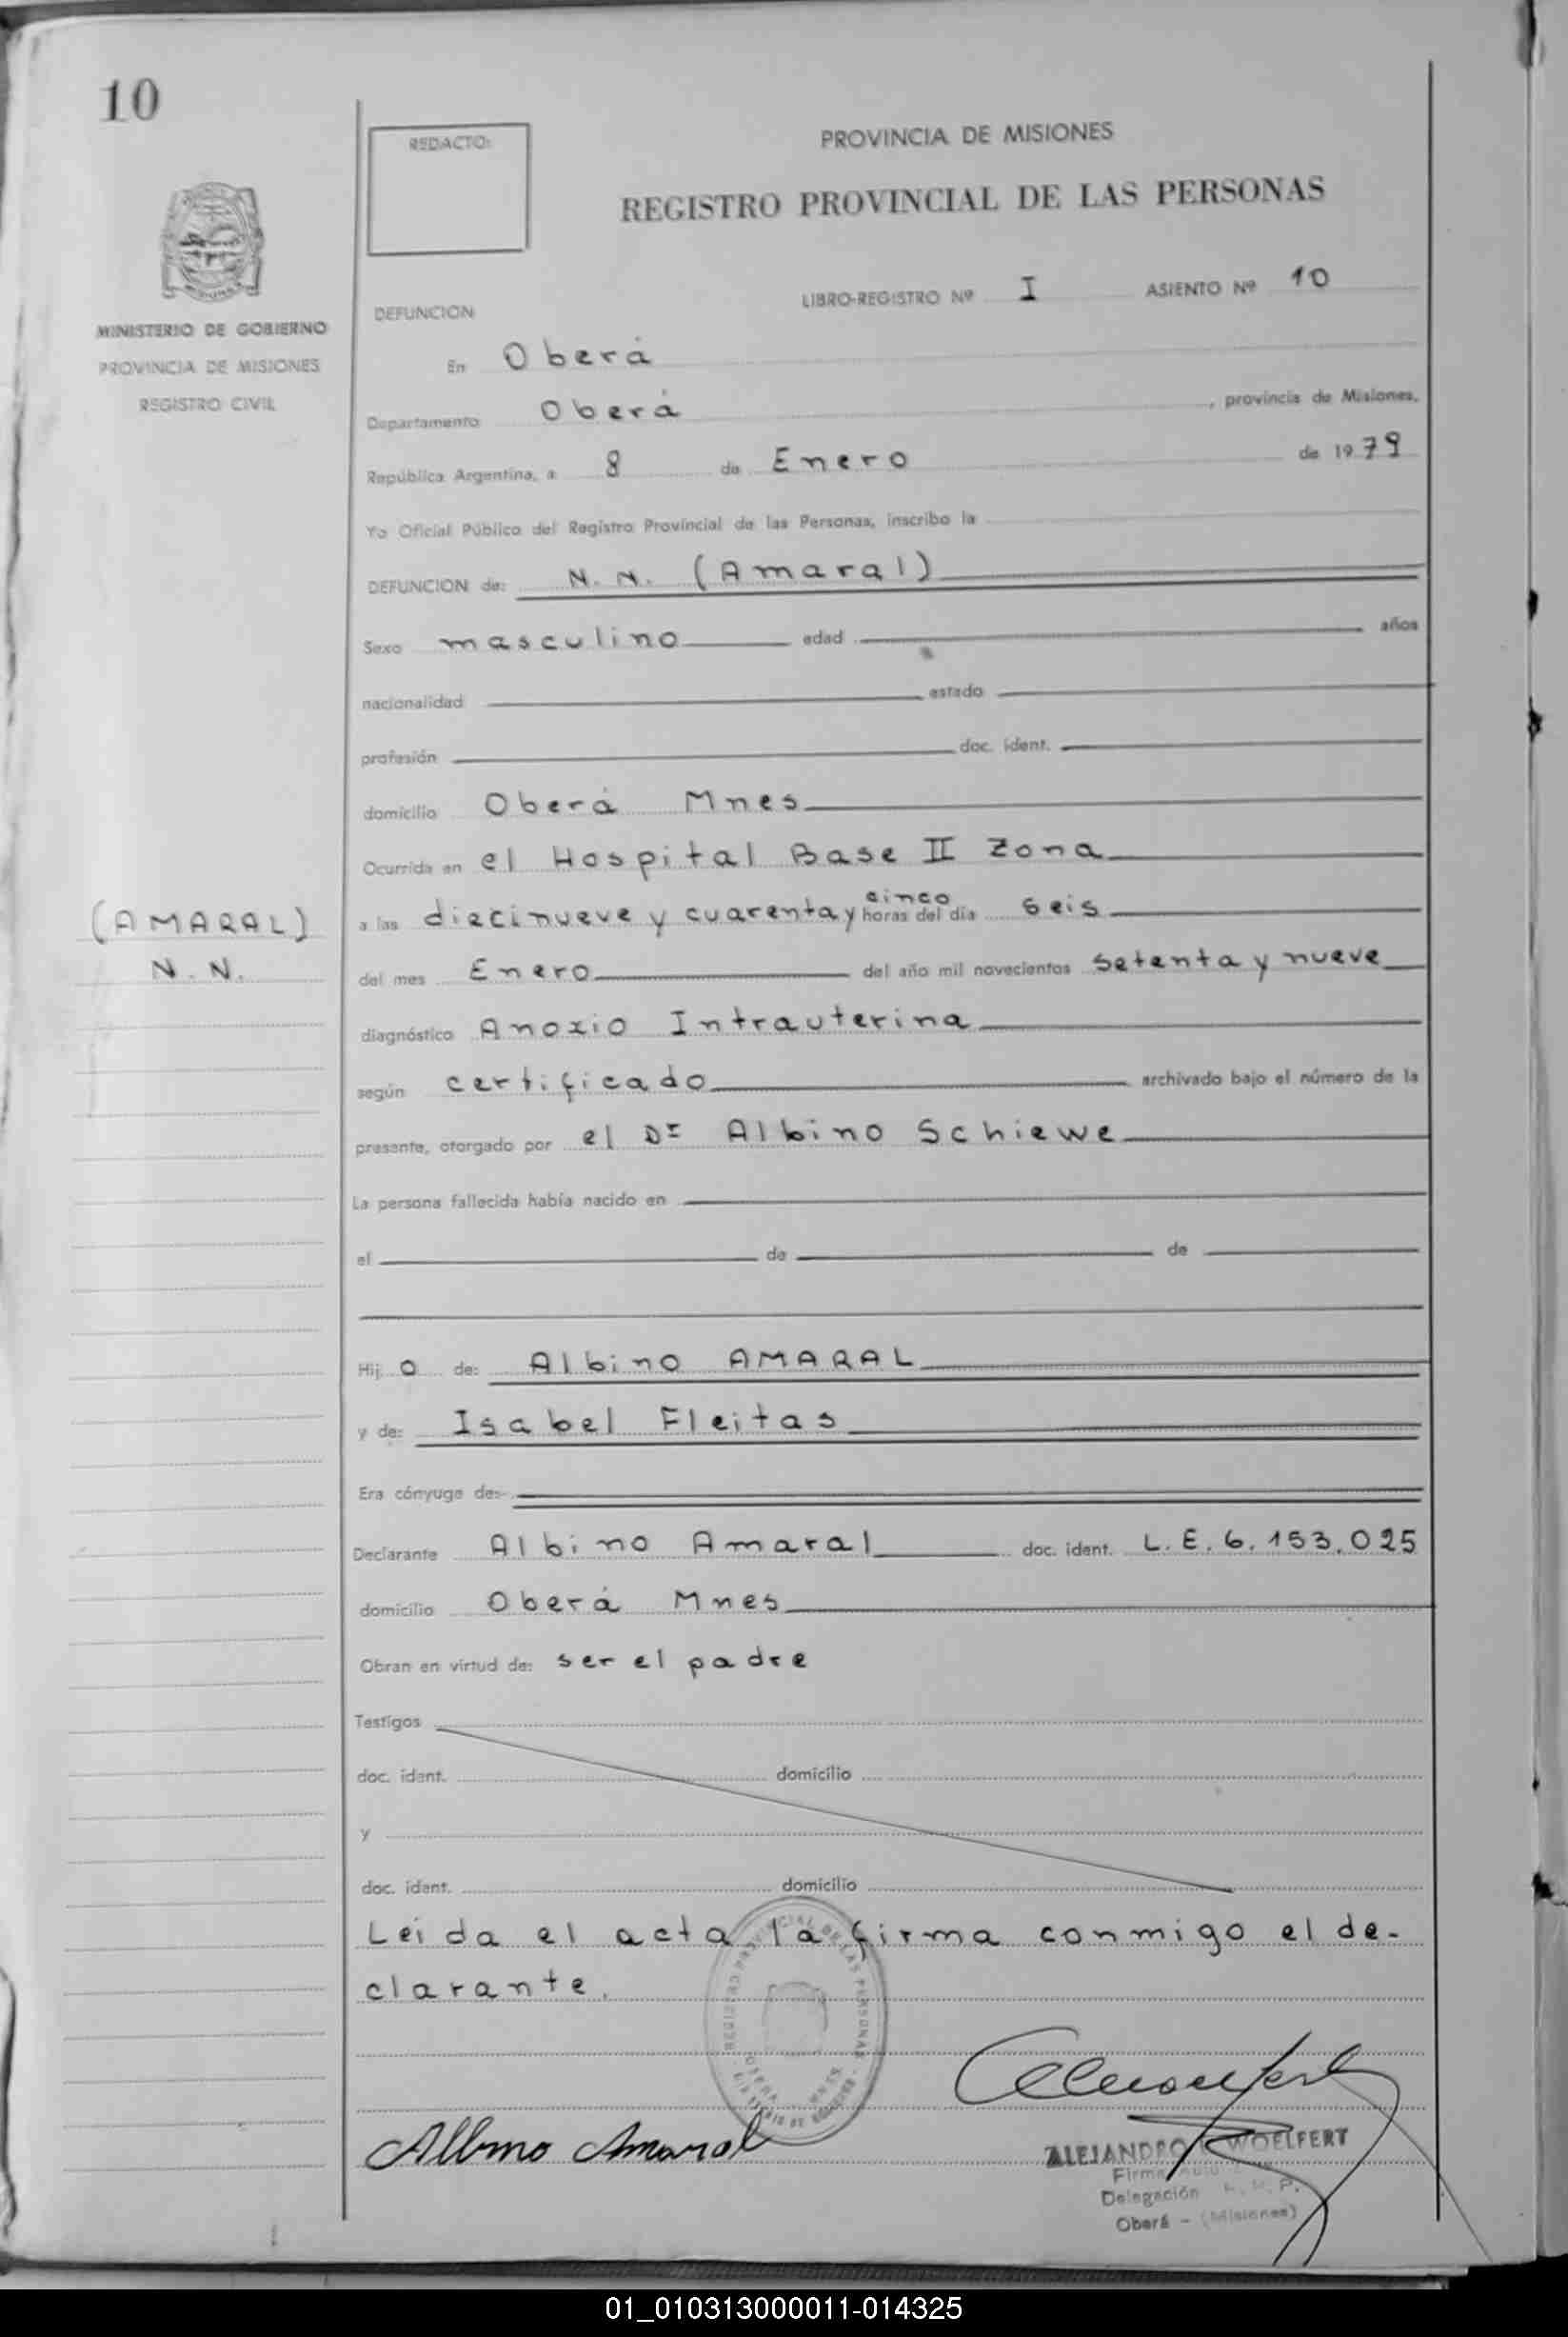 10
REDACTO:
PROVINCIA DE MISIONES
REGISTRO PROVINCIAL DE LAS PERSONAS
LIBRO-REGISTRO Nº I ASIENTO Nº 10
MINISTERIO DE GOBIERNO
PROVINCIA DE MISIONES
REGISTRO CIVIL
DEFUNCION
En Oberá
Departamento Oberá, provincia de Misiones,
República Argentina, a 8 de Enero de 1979
Yo Oficial Público del Registro Provincial de las Personas, inscribo la
DEFUNCION de: N. N. (Amaral)
Sexo masculino edad años
nacionalidad estado
profesión doc. ident.
domicilio Oberá Mnes
Ocurrida en el Hospital Base II Zona
(AMARAL)
N. N.
a las diecinueve y cuarenta y cinco horas del día seis
del mes Enero del año mil novecientos setenta y nueve
diagnóstico Anoxio Intrauterina
según certificado archivado bajo el número de la
presente, otorgado por el Dr Albino Schiewe
La persona fallecida había nacido en
el de de
Hijo de: Albino AMARAL
y de: Isabel Fleitas
Era cónyuge de:
Declarante Albino Amaral doc. ident. L.E. 6.153.025
domicilio Oberá Mnes
Obran en virtud de: ser el padre
Testigos
doc. ident. domicilio
y
doc. ident. domicilio
Leida el acta la firma conmigo el de-
clarante.
REGISTRO PROVINCIAL DE LAS PERSONAS
Albino Amaral
ALEJANDRO WOELFERT
Firma
Delegación R. P. P.
Oberá - (Misiones)
01_010313000011-014325